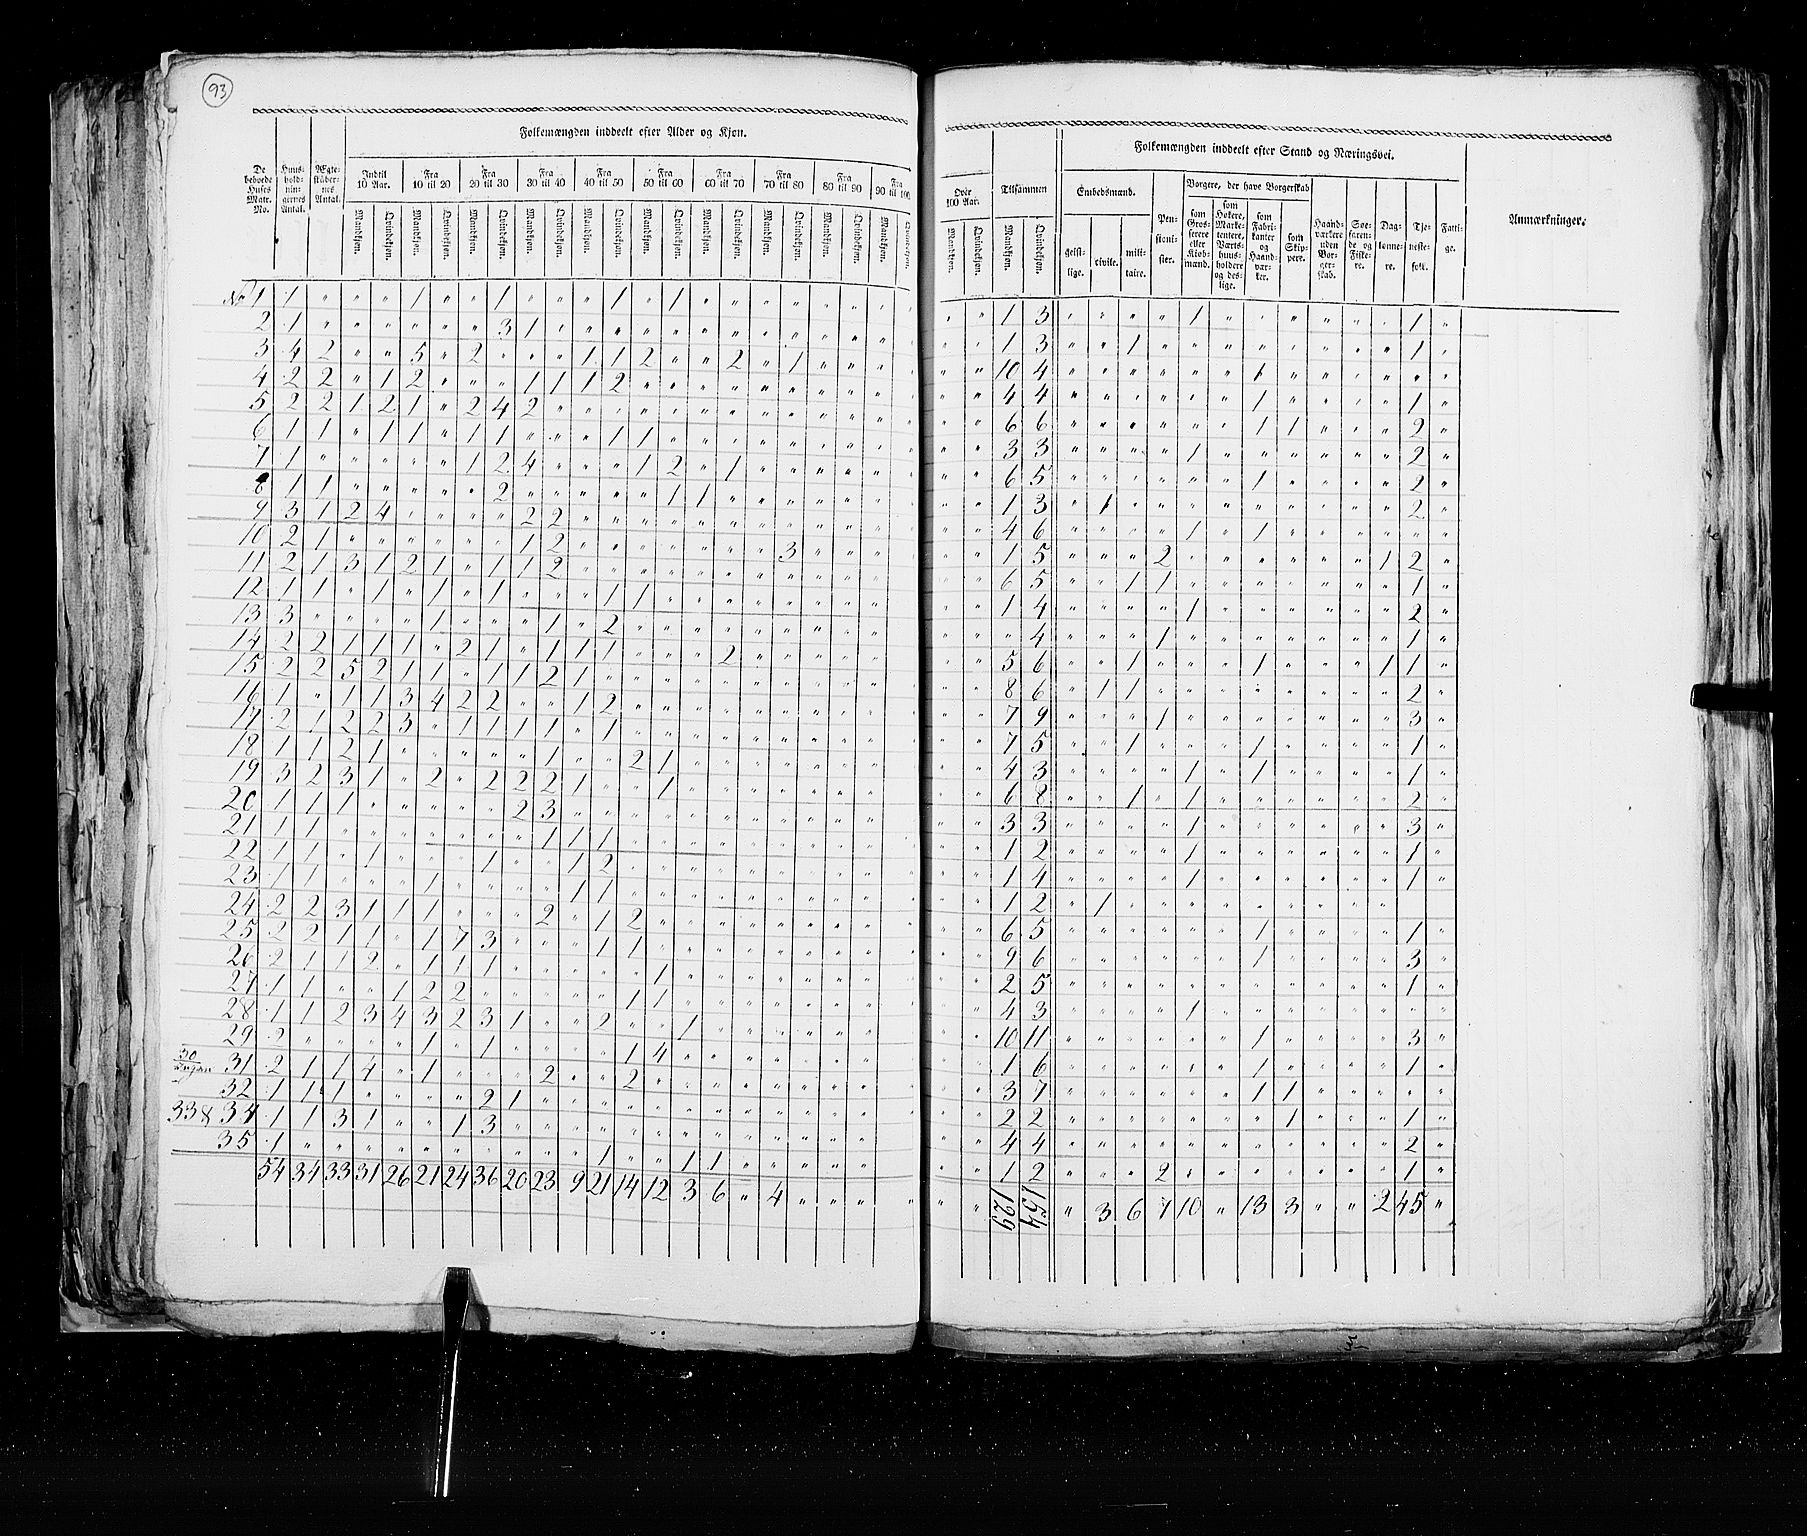 93
Folkemængden inddeelt efter Alder og Kjøn.
De beboede Huses Matr. No.
Huus-hold-nin-gernes Antal.
Ægte-stædernes Antal.
Indtil 10 Aar.
Fra 10 til 20
Fra 20 til 30
Fra 30 til 40
Fra 40 til 50
Fra 50 til 60
Fra 60 til 70
Fra 70 til 80
Fra 80 til 90
Fra 90 til 100
Mandkjøn. Qvindekjøn. Mandkjøn. Qvindekjøn. Mandkjøn. Qvindekjøn. Mandkjøn. Qvindekjøn. Mandkjøn. Qvindekjøn. Mandkjøn. Qvindekjøn. Mandkjøn. Qvindekjøn. Mandkjøn. Qvindekjøn. Mandkjøn. Qvindekjøn. Mandkjøn. Qvindekjøn.
No 1 1 " " " 1 " " 1 " " " 1 " 1 " " " " " " " "
2 1 " " " " " " 3 1 " " " " " " " " " " " "
3 4 2 " " 5 " 2 " " " 1 1 2 " " 2 " 1 " " "
4 2 2 " 1 2 " " " 1 1 1 2 " " " " " " " " "
5 2 2 1 2 1 " 2 4 2 " " " " " " " " " " " "
6 1 1 " 1 1 " 1 1 " " " 1 1 " " " " " " " "
7 1 " " " " " 1 2 4 " " " 1 2 " 1 " " " " "
8 1 1 " " " " " 2 " " " " " 1 1 " " " " " "
9 3 1 2 4 " " " " 2 2 " " " " " " " " " " "
10 2 1 " " " " " " 1 2 " " " " " " " 3 " " "
11 2 1 3 1 2 1 " 1 1 2 " " " " " " " " " " "
12 1 1 " 1 " 1 " 1 " " " 1 1 " " " " " " " "
13 3 " " " " 1 " " " 1 " 2 " " " " " " " " "
14 2 2 1 1 1 " 2 1 " 1 1 1 " " " 2 " " " " "
15 2 2 5 2 1 1 " 1 1 2 1 " " " " " " " " " "
16 1 " 1 1 3 4 2 2 " " 1 2 " " " " " " " " "
17 2 1 2 2 3 " 1 1 1 1 " 1 " " " " " " " " "
18 1 1 2 1 " " " " " 1 " " 2 1 " " " " " " "
19 3 2 3 1 " 2 " 2 2 2 1 " " 1 " " " " " " "
20 1 1 1 " " " " " 2 3 " " " " " " " " " " "
21 1 1 " " " " " " " 1 1 1 " " " " " " " " "
22 1 1 " 1 " " " 1 " " 1 2 " " " " " " " " "
23 1 1 " " " 1 " " " " 1 1 " " " " " " " " "
24 2 2 3 1 1 1 " " " 2 " 1 2 " " " " " " " "
25 2 2 1 1 " 1 7 3 " " " 1 1 " " " " " " " "
26 2 1 1 2 " 1 1 1 " " " " " 1 " " " " " " "
27 1 1 " " 1 2 2 " " " " " 1 1 " " " " " " "
28 1 1 2 3 4 3 2 3 1 " " 2 " " 1 " " " " " "
29 2 " " " " 1 " 1 " " " " 1 4 " " " " " " "
30 31 2 1 1 4 " 1 " " " 2 " " 2 " " " " " " " "
32 1 1 1 " " " " 2 1 " " " " " " " " " " " "
33 & 34 1 1 3 1 " " 1 3 " " " " " " " " " " " " "
35 1 " " " " " " " " " " 1 " " 1 1 " " " " "
54 34 33 31 26 21 24 36 20 23 9 21 14 12 3 6 " 4 " " "
Over 100 Aar.
Tilsammen
Folkemængden inddeelt efter Stand og Næringsvei.
Anmærkninger.
Mandkjøn. Qvindekjøn. Mandkjøn. Qvindekjøn.
Embedsmænd.
geist-lige. civile. mili-taire.
Pen-sioni-ster.
Borgere, der have Borgerskab
som Gros-serere eller Kiøb-mænd.
som Høkere, Marke-tentere, Værts-huus-holdere og des-lige.
som Fabri-kanter og Haand-vær-ker.
som Skip-pere.
Haand-værkere uden Bor-ger-skab.
Søe-farende og Fiske-re.
Dag-lønne-re.
Tje-neste-folk.
Fatti-ge.
" " 1 3 " " " " 1 " " " " " " 1 "
" " 1 3 " " 1 " " " " " " " " 1 "
" " 10 4 " " " " " " 1 " " " " " "
" " 4 4 " " " " " " 1 " " " " 1 "
" " 6 6 " " " " " " 1 1 " " " 2 "
" " 3 3 " " " " 1 " " " " " " 2 "
" " 6 5 " " " " " " 1 " " " " 2 "
" " 1 3 " 1 " " " " " " " " " 2 "
" " 4 6 " " " " 1 " 1 " " " " " "
" " 1 5 " " " 2 " " " " " " 1 2 "
" " 6 5 " " 1 1 " " " " " " " 1 "
" " 1 4 " " " " 1 " " " " " " 2 "
" " " 4 " " " 1 " " " " " " " 1 "
" " 5 6 " " 1 " " " 1 " " " 1 1 "
" " 8 6 " 1 1 " " " " " " " " 2 "
" " 7 9 " " " 1 " " " " " " " 3 "
" " 7 5 " " 1 " " " 1 " " " " 1 "
" " 4 3 " " " " 1 " 1 " " " " 1 "
" " 6 8 " " 1 " 1 " " " " " " 2 "
" " 3 3 " " " " 1 " " " " " " 3 "
" " 1 2 " " " " 1 " " " " " " 1 "
" " 1 4 " " " " 1 " " " " " " 1 "
" " 1 2 " 1 " " " " " " " " "
" " 6 5 " " " " " " 1 " " " " 1 "
" " 9 6 " " " " " " 1 " " " " 3 "
" " 2 5 " " " " " " " " " " " 1 "
" " 4 3 " " " " 1 " " " " " " " "
" " 10 11 " " " " " " 1 " " " " 3 "
" " 1 6 " " " " " " 1 " " " " 1 "
" " 3 7 " " " " " " 1 1 " " " " "
" " 2 2 " " " " " " " 1 " " " 1 "
" " 4 4 " " " " " " " " " " " 2 "
" " 1 2 " " " 2 " " " " " " " 1 "
" " 129 154 " 3 6 7 10 " 13 3 " " 2 45 "